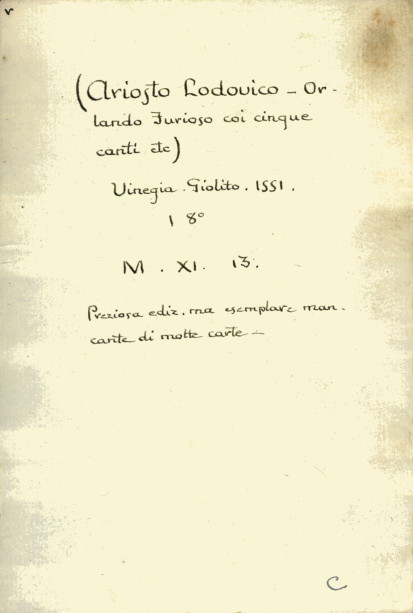 v
(Ariosto Lodovico - Or-
lando Furioso coi cinque
canti etc)
Vinegia. Giolito. 1551.
1 8°
M. XI. 13.
Preziosa ediz. ma esemplare man-
cante di molte carte -
C